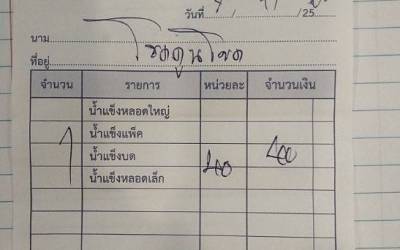 วันที่ / /25
นาม
ที่อยู่
จำนวน รายการ หน่วยละ จำนวนเงิน
น้ำแข็งหลอดใหญ่
น้ำแข็งแพ็ค
1 น้ำแข็งบด 40 40
น้ำแข็งหลอดเล็ก